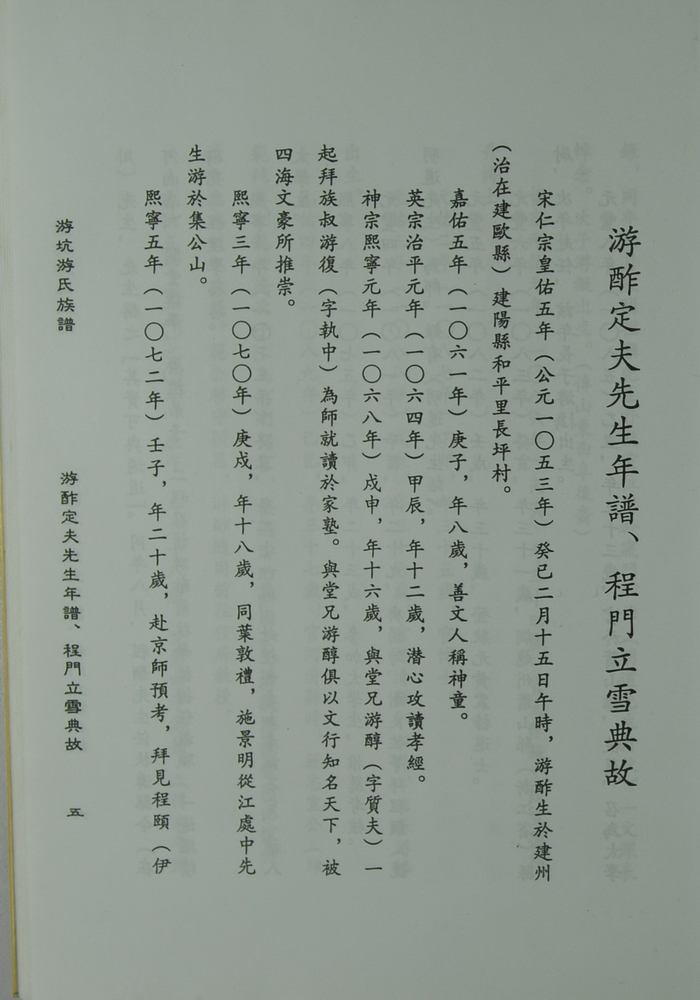 游酢定夫先生年譜、程門立雪典故
宋仁宗皇佑五年（公元一〇五三年）癸巳二月十五日午時，游酢生於建州
（治在建歐縣）建陽縣和平里長坪村。
嘉佑五年（一〇六一年）庚子，年八歲，善文人稱神童。
英宗治平元年（一〇六四年）甲辰，年十二歲，潛心攻讀孝經。
神宗熙寧元年（一〇六八年）戊申，年十六歲，與堂兄游醇（字質夫）一
起拜族叔游復（字執中）為師就讀於家塾。與堂兄游醇俱以文行知名天下，被
四海文豪所推崇。
熙寧三年（一〇七〇年）庚戍，年十八歲，同葉敦禮，施景明從江處中先
生游於集公山。
熙寧五年（一〇七二年）壬子，年二十歲，赴京師預考，拜見程頤（伊
游坑游氏族譜
游酢定夫先生年譜、程門立雪典故
五